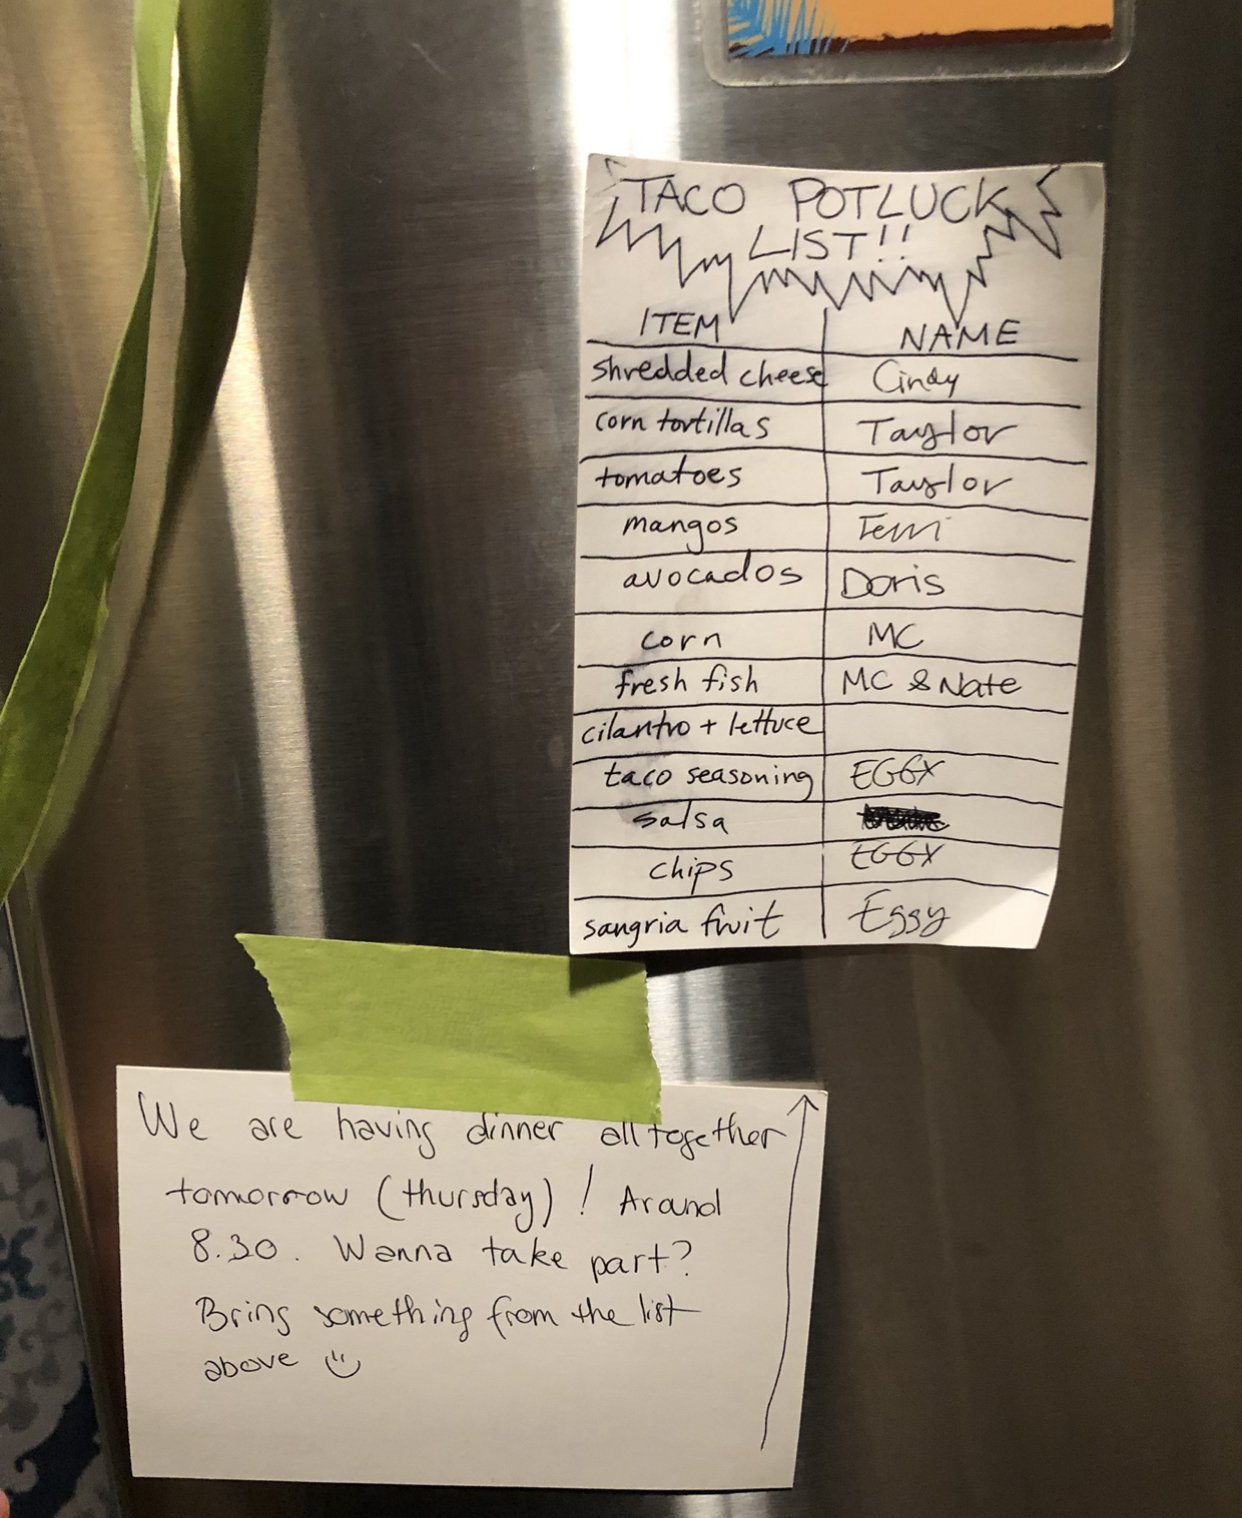 TACO POTLUCK
LIST!!
ITEM NAME
shredded cheese Cindy
corn tortillas Taylor
tomatoes Taylor
mangos Terri
avocados Doris
corn MC
fresh fish MC & Nate
cilantro + lettuce
taco seasoning EGGY
salsa
chips EGGY
sangria fruit Eggy
We are having dinner all together
tomorrow (thursday)! Around
8.30. Wanna take part?
Bring something from the list
above